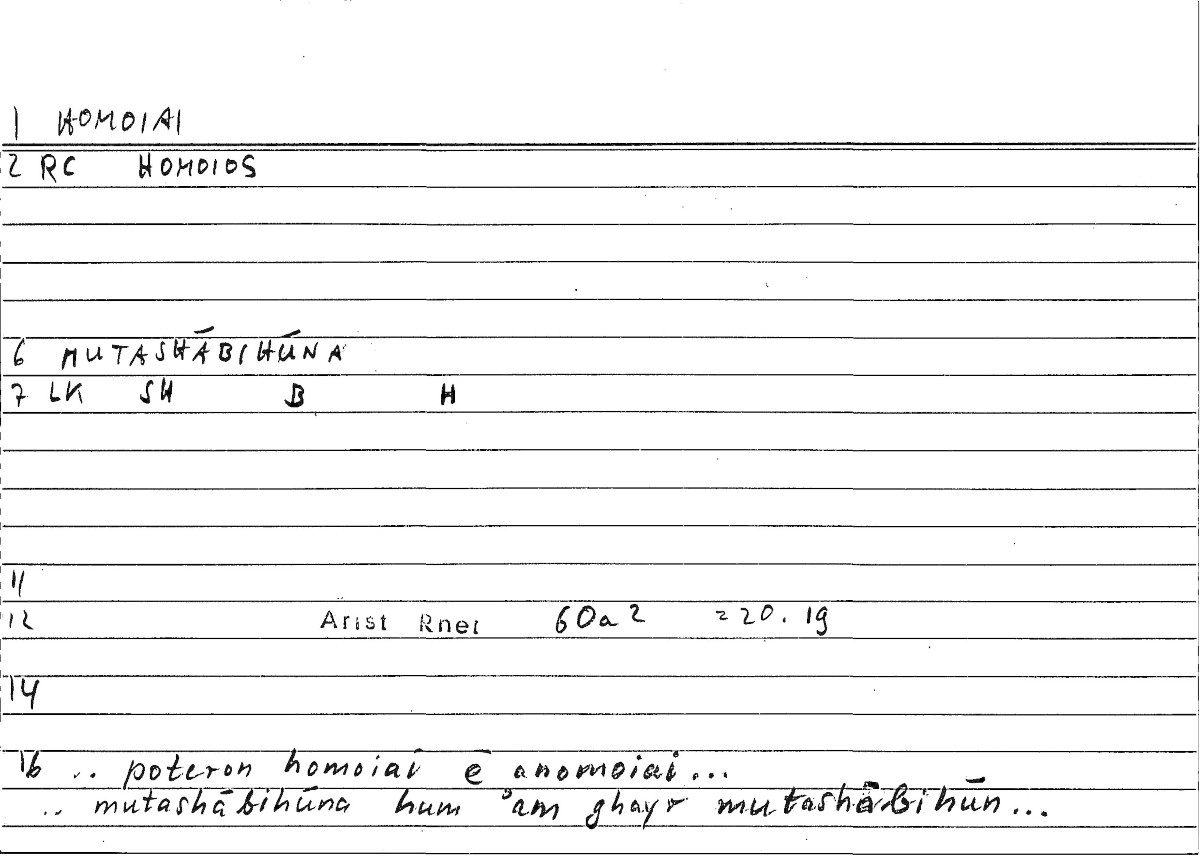 1 HOMOIAI
2 RC HOMOIOS
6 MUTASHĀBIHŪNA
7 LK SH B H
11
12 Arist Rhet 60a2 =20.19
14
16 .. poteron homoiai ē anomoiai...
.. mutashābihūna hum ʾam ghayr mutashābihūn...